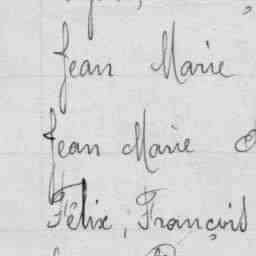 Jean Marie
Jean Marie
Félix, François